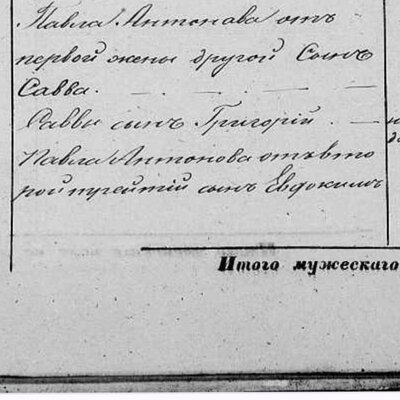 Павла Антонова отъ
первой жены другой Сынъ
Савва.
Саввы сынъ Григорій
Павла Антонова отъ вто
рой третій сынъ Евдокимъ
Итого мужескаго